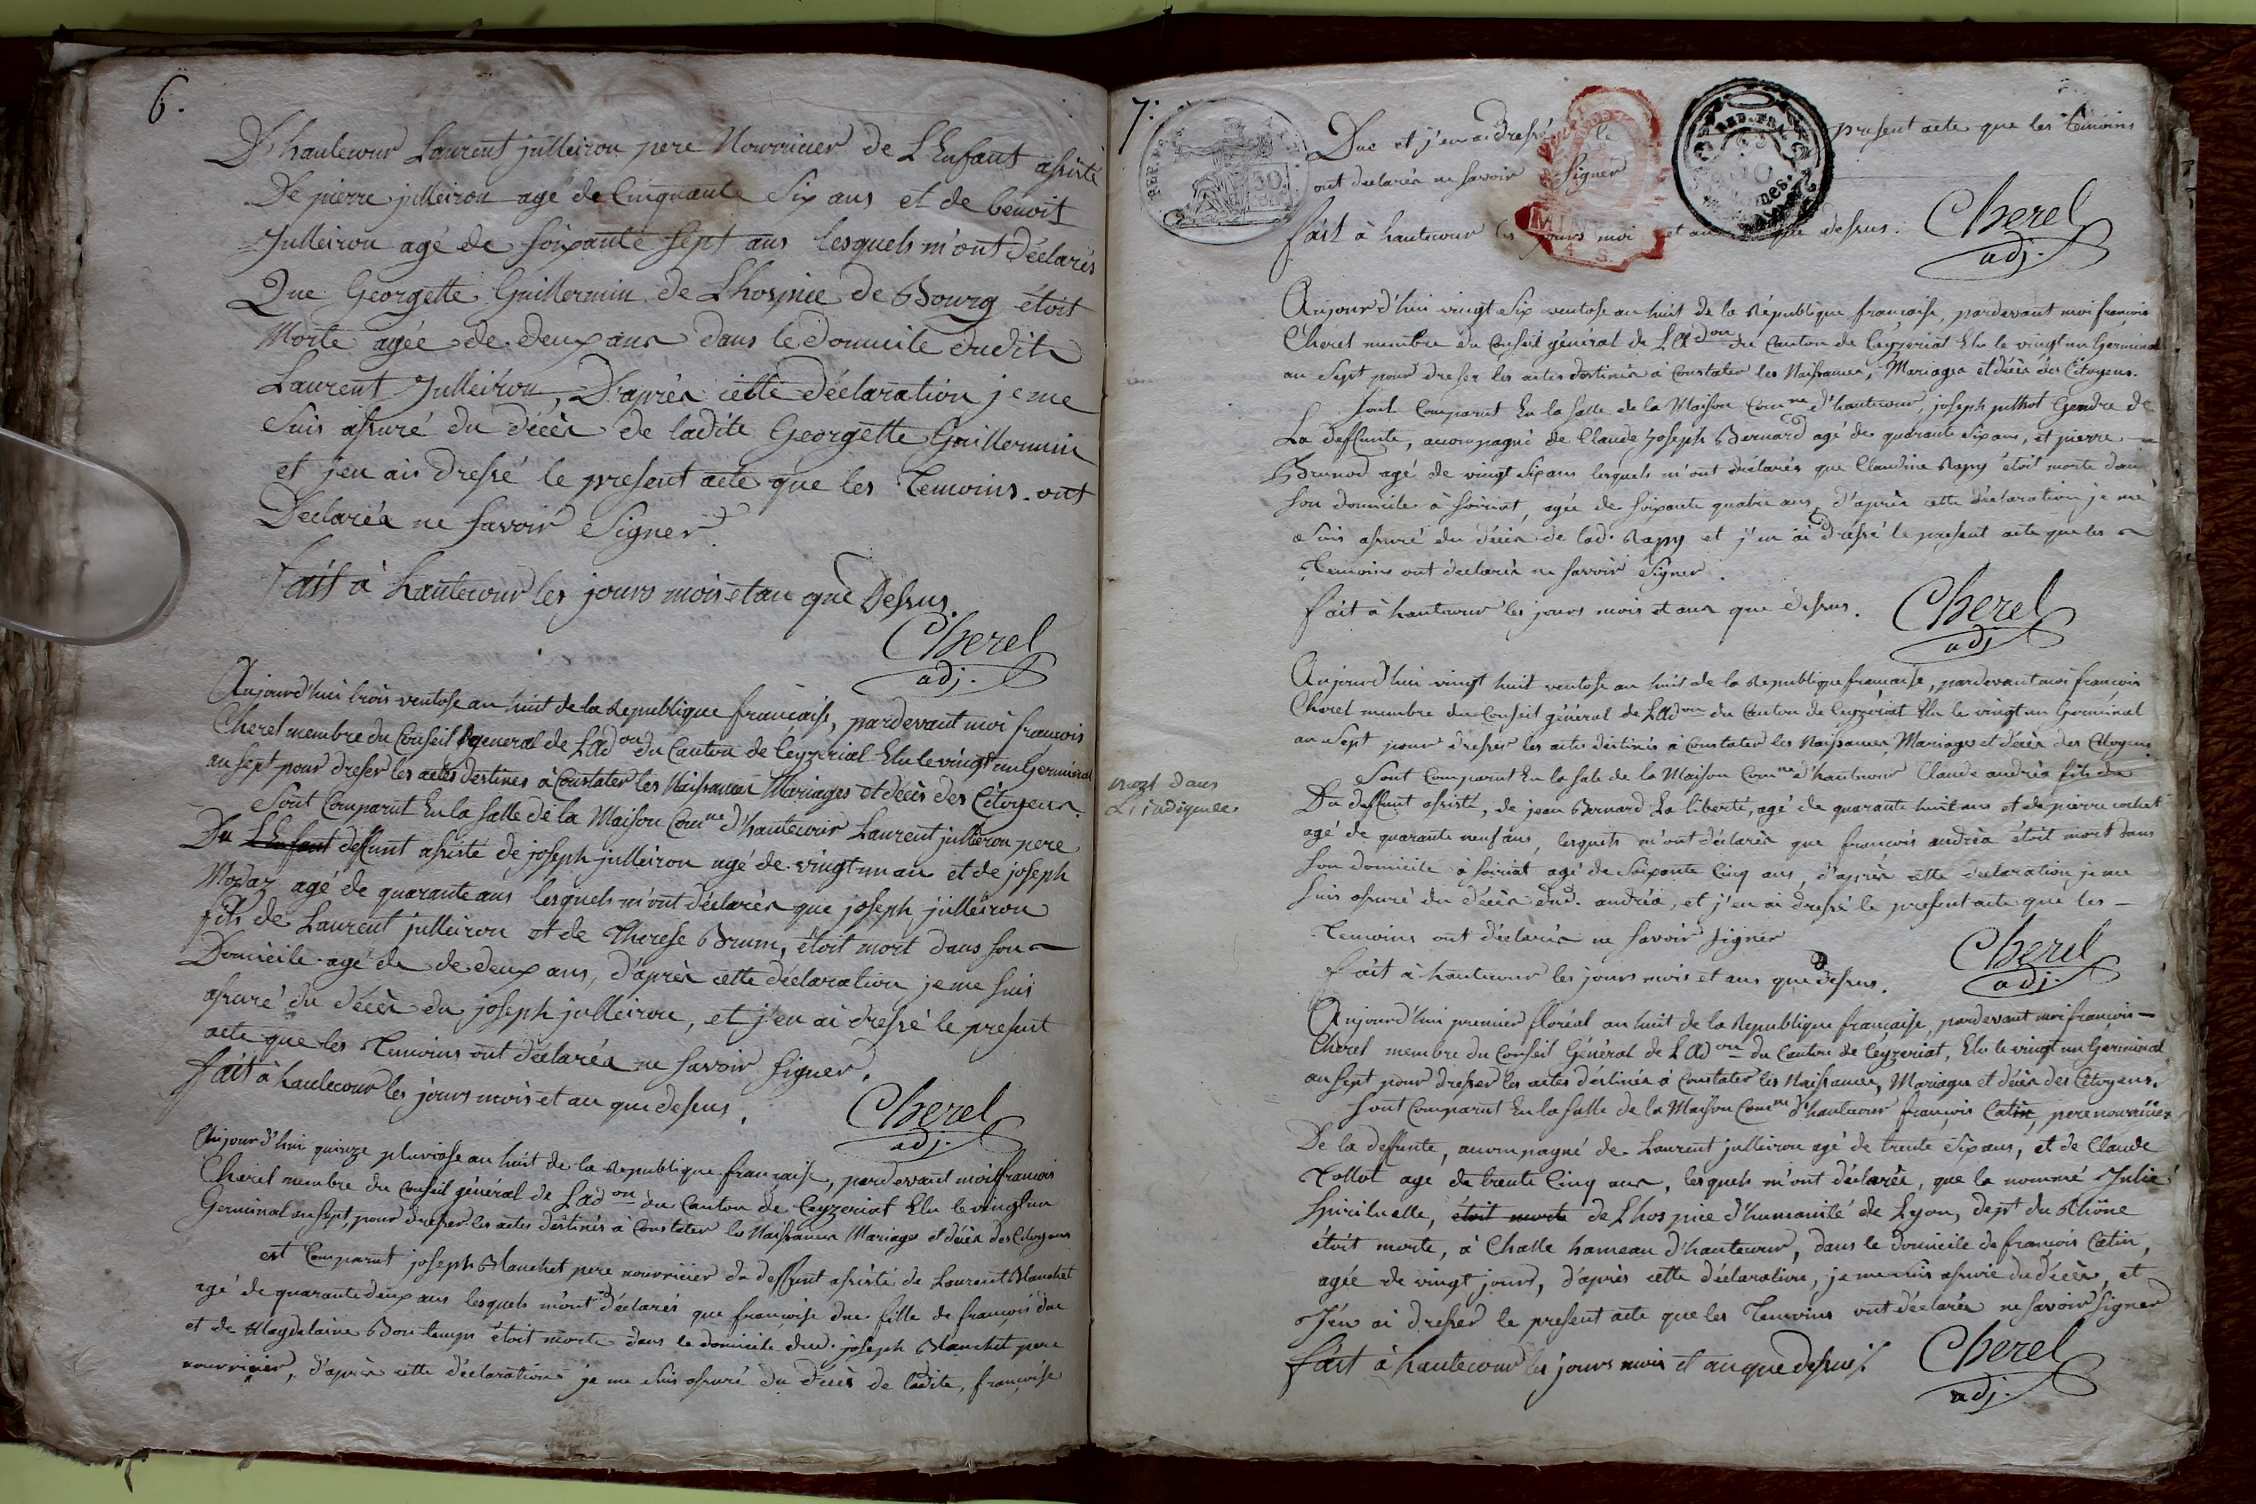 6.
D'hautecour Laurent julleiron pere Nourricier de L'Enfant assisté
De pierre julleiron agé de Cinquante Six ans et de benoit
Julleiron agé de soixante sept ans lesquels m'ont déclarés
Que Georgette Guillermin de L'hospice de Bourg étoit
Morte agée de deux ans dans le domicile dudit
Laurent Julleiron, D'après cette déclaration je me
Suis assuré du décès de ladite Georgette Guillermin
et j'en ais dressé le present acte que les Temoins ont
Declarés ne savoir Signer.
fait à hautecour les jours mois et an que Dessus.
Cherel
adj.
Aujourd'hui trois ventose an huit de la Republique française, pardevant moi francois
Cherel membre du Conseil general de L'Adon du Canton de Ceyzeriat Elu le vingt un Germinal
an sept pour dresser les actes destinés à Constater les Naissances Mariages et décès des Citoyens
Sont Comparut En la salle de la Maison Comne d'hautecour Laurent julleron pere
Du L'Enfant deffunt assisté de joseph julleiron agé de vingt un an et de joseph
Modaz agé de quarante ans lesquels m'ont déclarés que joseph julleiron
fils de Laurent julleiron et de Therese Brun, étoit mort dans son
Domicile agé de de deux ans, d'après cette déclaration je me suis
assuré du décès du joseph julleiron, et j'en ai dressé le present
acte que les Temoins ont déclarés ne savoir signer.
fait à hautecour les jours mois et an que dessus.
Cherel
adj.
Aujourd'hui quinze pluviose an huit de la Republique française, pardevant moi francois
Cherel membre du Conseil général de L'adon du Canton de Ceyzeriat Elu le vingt un
Germinal an sept, pour dresser les actes destinés à Constater les Naissances Mariages et décès des Citoyens
est Comparut joseph Blanchet pere nourricier du deffunt assisté de Laurent Blanchet
agé de quarante deux ans lesquels m'ont déclarés que françoise duc fille de françois duc
et de Magdelaine Bontemps étoit morte dans le domicile dud. joseph Blanchet pere
nourricier, d'après cette déclaration je me suis assuré du décès de ladite, françoise
7.
Duc et j'en ai dressé le present acte que les Temoins
ont declarés ne savoir Signer
fait à hautecour les jours mois et an que dessus.
Cherel
adj.
Aujourd'hui vingt Six ventose an huit de la République française, pardevant moi francois
Cherel membre du Conseil général de L'Adon du Canton de Ceyzeriat Elu le vingt un Germinal
an Sept pour dresser les actes destinés à Constater les Naissances, Mariages et décès des Citoyens.
Sont Comparut En la Salle de la Maison Comne d'hautecour, joseph juthot Gendre de
La deffunte, accompagné de Claude joseph Bernard agé de quarante Six ans, et pierre
Brunod agé de vingt Six ans lesquels m'ont déclarés que Claudine Rapy étoit morte dans
Son domicile à Soiriat, agée de soixante quatre ans, d'après cette déclaration, je me
Suis assuré du décès de lad. Rapy et j'en ai dressé le present acte que les
Temoins ont déclarés ne savoir Signer.
fait à hautecour les jours mois et ans que dessus.
Cherel
adj
Aujourd'hui vingt huit ventose an huit de la Republique francaise, pardevant moi francois
Cherel membre du Conseil général de L'Adon du Canton de Ceyzériat Elu le vingt un Germinal
an Sept pour dresser les actes destinés à Constater les Naissances, Mariages et décès des Citoyens
Sont Comparut En la Sale de la Maison Comne d'hautecour Claude andréa fils du
Du deffunt assisté, de jean Bernard La liberté, agé de quarante huit ans et de pierre cochet
agé de quarante neuf ans, lesquels m'ont déclarés que francois andréa étoit mort dans
mort dans
L'indigence
Son domicile à soiriat agé de Soixante Cinq ans, d'après cette declaration je me
Suis assuré du décès dud. andréa, et j'en ai dressé le present acte que les
Temoins ont déclarés ne savoir signer
fait à hautecour les jours mois et ans que dessus.
Cherel
adj.
Aujourd'hui premier floréal an huit de la Republique française, pardevant moi françois
Cherel membre du Conseil Général de L'Adon du Canton de Ceyzeriat, Elu le vingt un Germinal
an Sept pour dresser les actes déstinés à Constater les Naissances, Mariages et décès des Citoyens.
Sont Comparut En la Salle de la Maison Comne d'hautecour françois Catin, pere nourricier
De la deffunte, accompagné de Laurent julleiron agé de trente Six ans, et de Claude
Tollot agé de trente Cinq ans, lesquels m'ont déclarés, que la nommé Julie
Spirituelle, étoit morte de L'hospice d'humanité de Lyon, dept du Rhône
étoit morte, à Challe hameau d'hautecour, dans le domicile de françois Catin,
agée de vingt jours, d'après cette déclaration, je me suis assurée du décès, et
J'en ai dresser le present acte que les Temoins ont déclarés ne savoir signer
fait à hautecour les jours mois et an que dessus.
Cherel
adj.